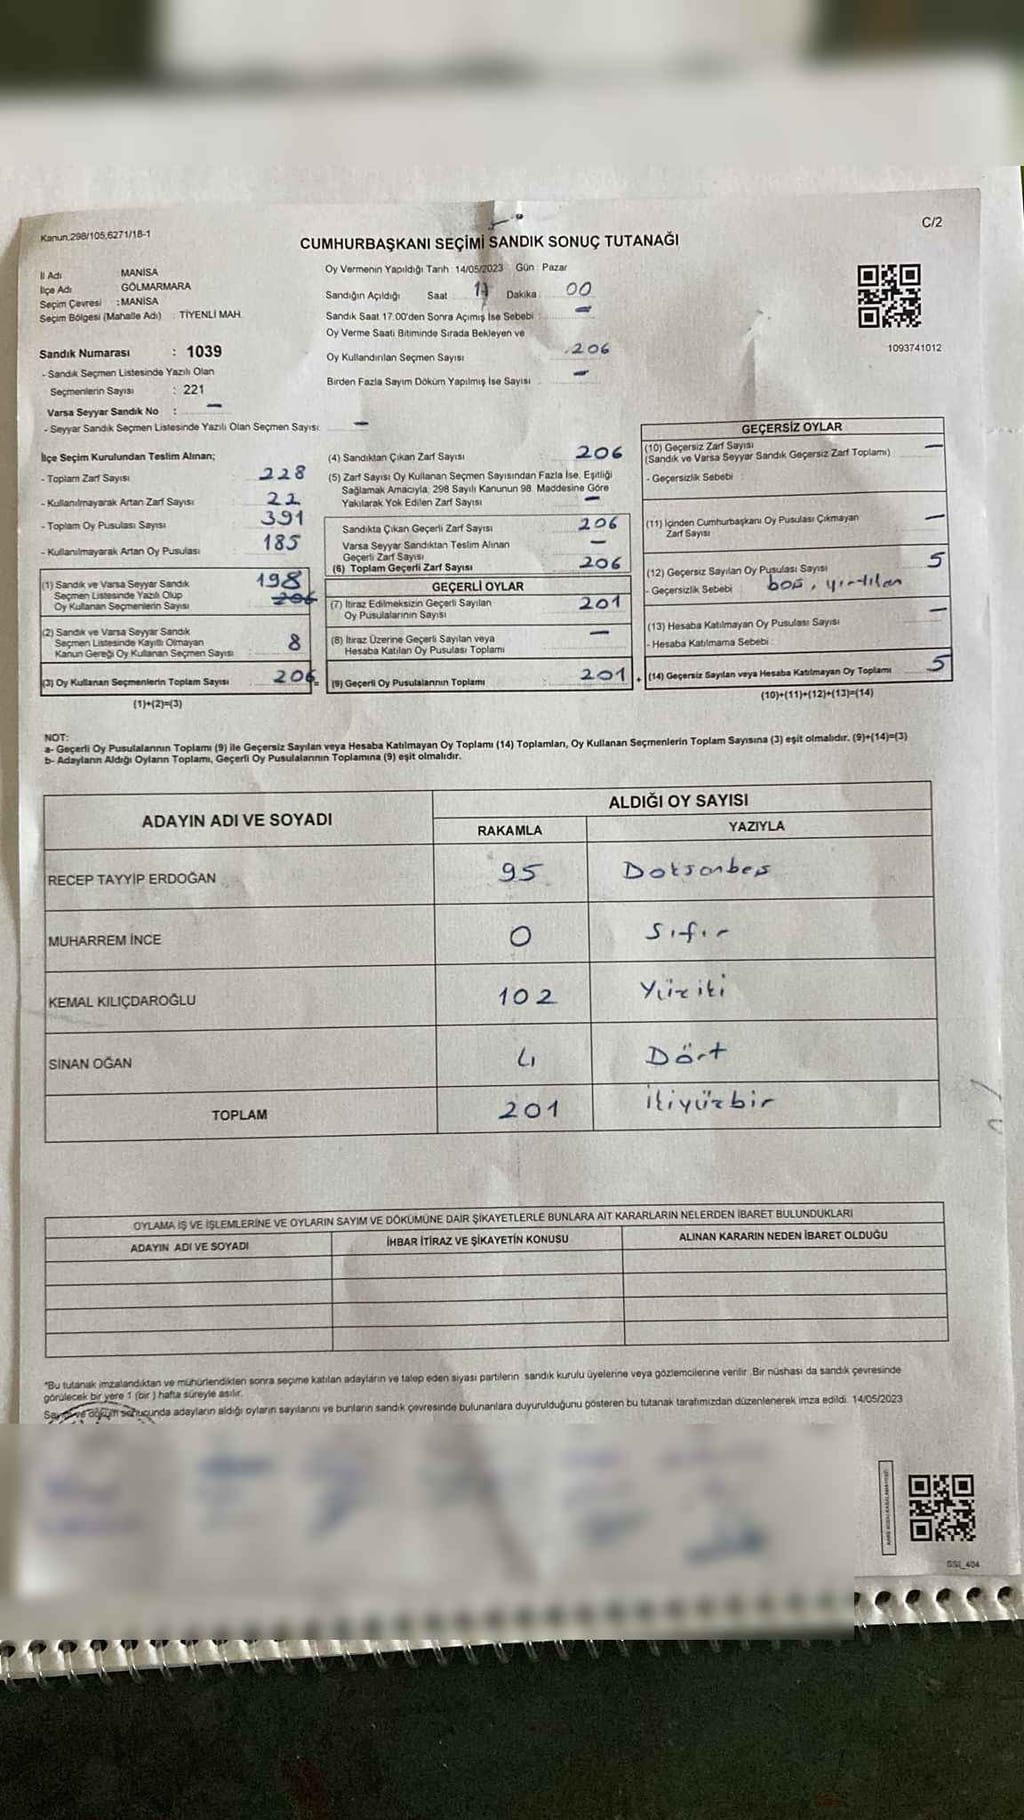 Kanun.298/105,6271/18-1
C/2
CUMHURBAŞKANI SEÇİMİ SANDIK SONUÇ TUTANAĞI
İl Adı MANİSA
İlçe Adı GÖLMARMARA
Seçim Çevresi : MANİSA
Seçim Bölgesi (Mahalle Adı) : TİYENLİ MAH.
Sandık Numarası : 1039
- Sandık Seçmen Listesinde Yazılı Olan
Seçmenlerin Sayısı : 221
Varsa Seyyar Sandık No : —
- Seyyar Sandık Seçmen Listesinde Yazılı Olan Seçmen Sayısı: —
Oy Vermenin Yapıldığı Tarih 14/05/2023 Gün : Pazar
Sandığın Açıldığı Saat 17 Dakika 00
Sandık Saat 17:00'den Sonra Açımış İse Sebebi : —
Oy Verme Saati Bitiminde Sırada Bekleyen ve
Oy Kullandırılan Seçmen Sayısı 206
Birden Fazla Sayım Döküm Yapılmış İse Sayısı —
1093741012
İlçe Seçim Kurulundan Teslim Alınan;
- Toplam Zarf Sayısı 228
- Kullanılmayarak Artan Zarf Sayısı 22
- Toplam Oy Pusulası Sayısı 391
- Kullanılmayarak Artan Oy Pusulası 185
(1) Sandık ve Varsa Seyyar Sandık 198
Seçmen Listesinde Yazılı Olup 206
Oy Kullanan Seçmenlerin Sayısı
(2) Sandık ve Varsa Seyyar Sandık
Seçmen Listesinde Kayıtlı Olmayan 8
Kanun Gereği Oy Kullanan Seçmen Sayısı
(3) Oy Kullanan Seçmenlerin Toplam Sayısı 206
(1)+(2)=(3)
(4) Sandıktan Çıkan Zarf Sayısı 206
(5) Zarf Sayısı Oy Kullanan Seçmen Sayısından Fazla İse, Eşitliği
Sağlamak Amacıyla, 298 Sayılı Kanunun 98. Maddesine Göre
Yakılarak Yok Edilen Zarf Sayısı —
Sandıkta Çıkan Geçerli Zarf Sayısı 206
Varsa Seyyar Sandıktan Teslim Alınan —
Geçerli Zarf Sayısı
(6) Toplam Geçerli Zarf Sayısı 206
GEÇERLİ OYLAR
(7) İtiraz Edilmeksizin Geçerli Sayılan 201
Oy Pusulalarının Sayısı
(8) İtiraz Üzerine Geçerli Sayılan veya —
Hesaba Katılan Oy Pusulası Toplamı
(9) Geçerli Oy Pusulalarının Toplamı : 201
GEÇERSİZ OYLAR
(10) Geçersiz Zarf Sayısı —
(Sandık ve Varsa Seyyar Sandık Geçersiz Zarf Toplamı)
- Geçersizlik Sebebi :
(11) İçinden Cumhurbaşkanı Oy Pusulası Çıkmayan —
Zarf Sayısı
(12) Geçersiz Sayılan Oy Pusulası Sayısı 5
- Geçersizlik Sebebi boş, yırtılan
(13) Hesaba Katılmayan Oy Pusulası Sayısı —
- Hesaba Katılmama Sebebi :
(14) Geçersiz Sayılan veya Hesaba Katılmayan Oy Toplamı 5
(10)+(11)+(12)+(13)=(14)
NOT:
a- Geçerli Oy Pusulalarının Toplamı (9) ile Geçersiz Sayılan veya Hesaba Katılmayan Oy Toplamı (14) Toplamları, Oy Kullanan Seçmenlerin Toplam Sayısına (3) eşit olmalıdır. (9)+(14)=(3)
b- Adayların Aldığı Oyların Toplamı, Geçerli Oy Pusulalarının Toplamına (9) eşit olmalıdır.
ADAYIN ADI VE SOYADI ALDIĞI OY SAYISI
RAKAMLA YAZIYLA
RECEP TAYYİP ERDOĞAN 95 Doksanbeş
MUHARREM İNCE 0 Sıfır
KEMAL KILIÇDAROĞLU 102 Yüziki
SİNAN OĞAN 4 Dört
TOPLAM 201 İkiyüzbir
OYLAMA İŞ VE İŞLEMLERİNE VE OYLARIN SAYIM VE DÖKÜMÜNE DAİR ŞİKAYETLERLE BUNLARA AİT KARARLARIN NELERDEN İBARET BULUNDUKLARI
ADAYIN ADI VE SOYADI İHBAR İTİRAZ VE ŞİKAYETİN KONUSU ALINAN KARARIN NEDEN İBARET OLDUĞU
*Bu tutanak imzalandıktan ve mühürlendikten sonra seçime katılan adayların ve talep eden siyasi partilerin sandık kurulu üyelerine veya gözlemcilerine verilir. Bir nüshası da sandık çevresinde
görülecek bir yere 1 (bir) hafta süreyle asılır.
Sayım ve döküm sonucunda adayların aldığı oyların sayılarını ve bunların sandık çevresinde bulunanlara duyurulduğunu gösteren bu tutanak tarafımızdan düzenlenerek imza edildi. 14/05/2023